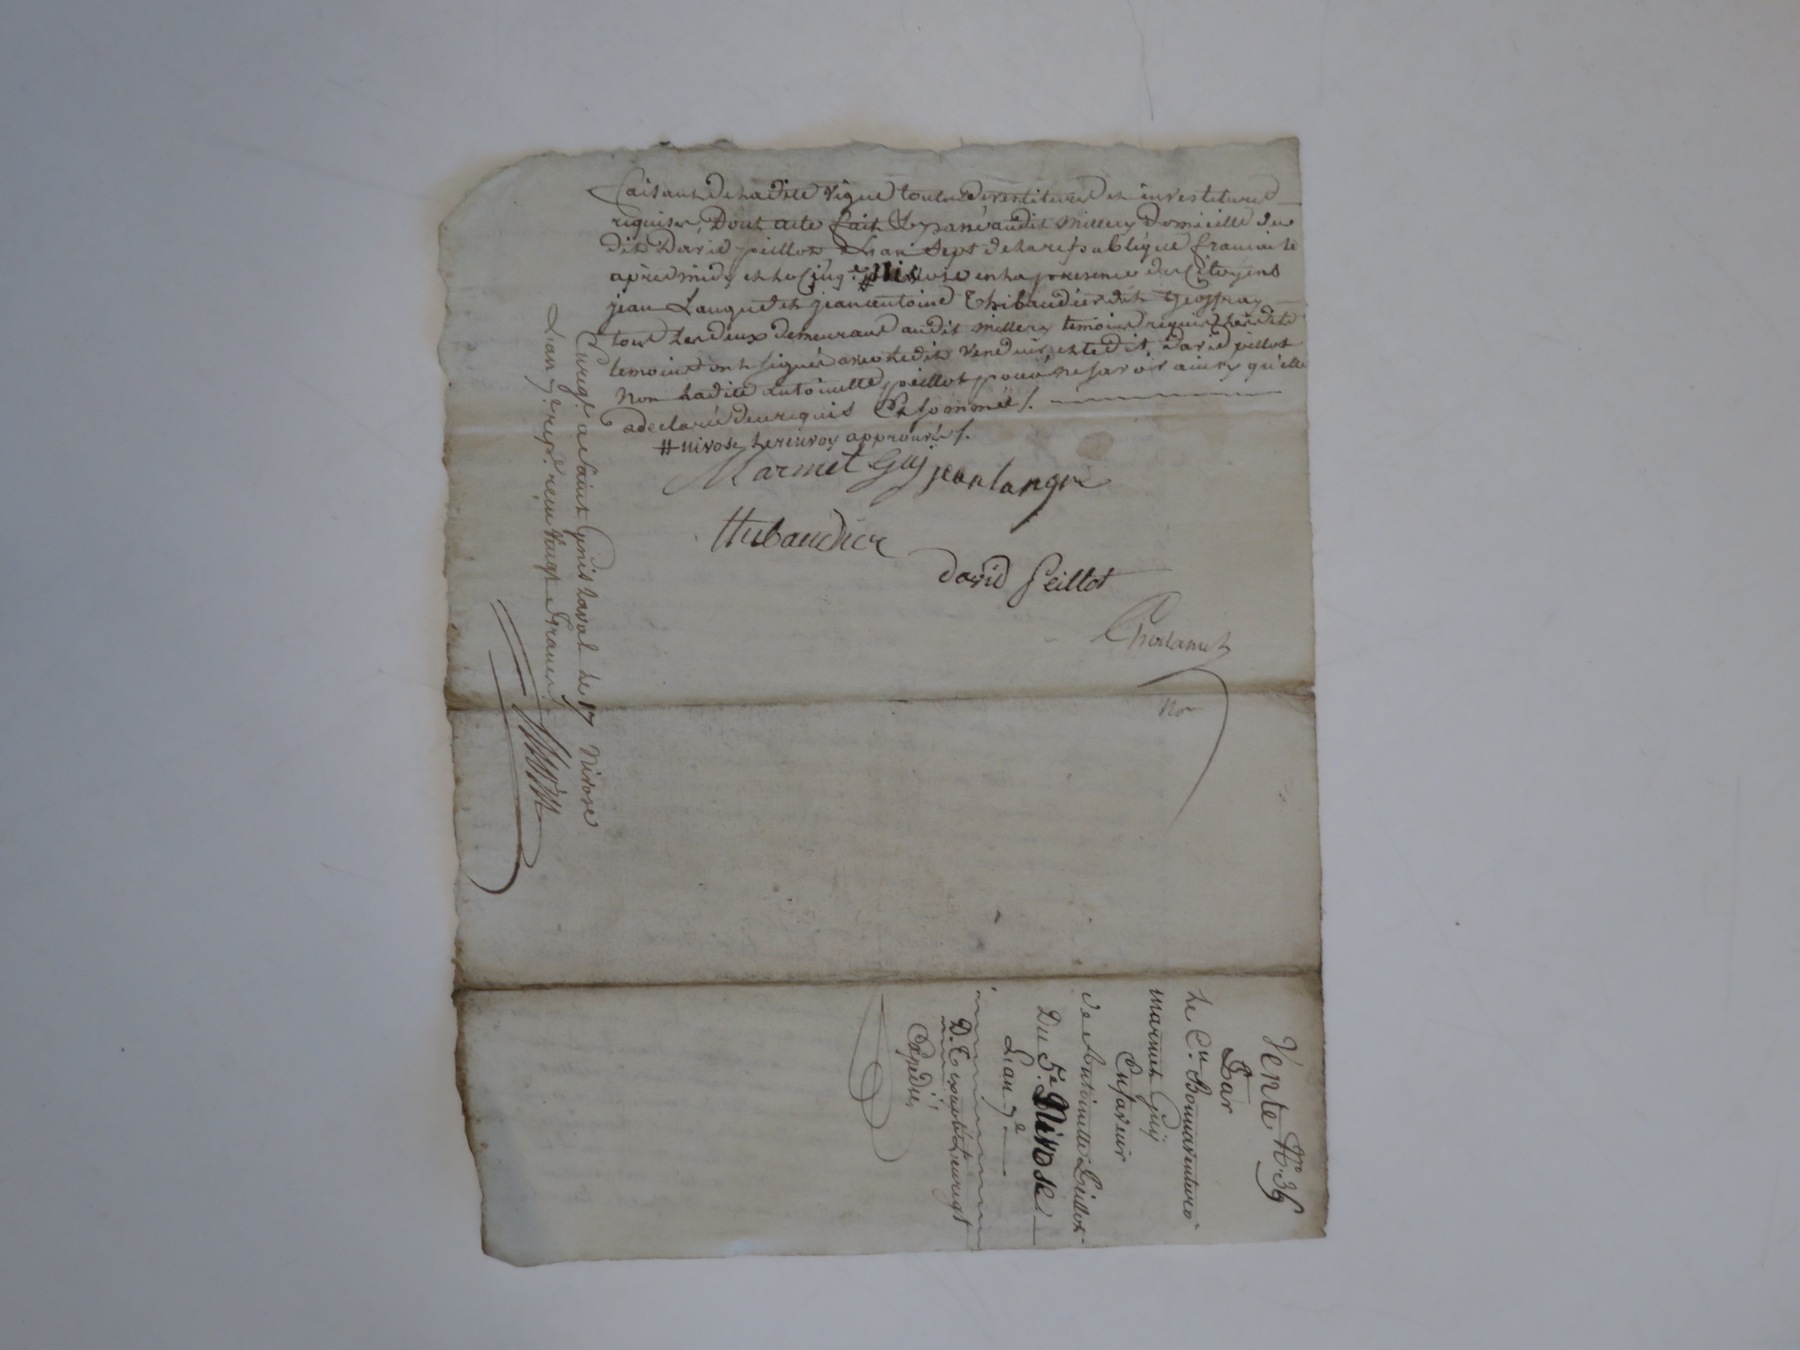 faisant de ladite vigne toutes devestitures et investitures
requises, Dont acte fait & passé audit millery domicille du
dit david peillot, L'an sept de la republique francaise
apres midy et le cinq # nivose en la presence des Citoyens
jean Langue et jean antoine Thibaudier dit geoffray
tous les deux demeurant audit millery temoins requis lesdits
temoins ont signé avec ledit vendeur, et ledit david peillot
Non ladite antoinette peillot pour ne savoir ainsy qu'elle
a declaré denrequis Et sommé /.
# nivose le renvoy approuvé /.
Marmet Guy jean langue
thibaudier
david Peillot
not
Enregt a saint genis laval le 17 Nivose
L'an 7e. repn. reçu vingt francs
Vente N°. 36
Par
Le Cn. Bonnaventure
marmet Guy
En faveur
de Antoinette Peillot
Du 5e. Nivose
L'an 7e
Expédié,